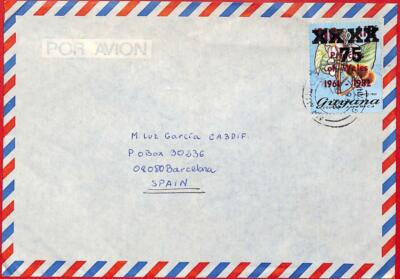 POR AVION
XX XX
75
1961 - 1982
Guyana
M. Luz García CABDIF.
P.O Box 30236
08080 Barcelona
SPAIN